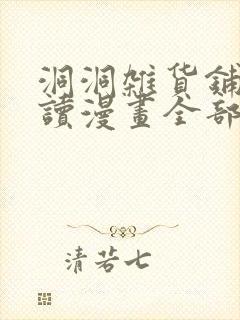 洞洞雜货鋪
讀漫畫全部
清若七